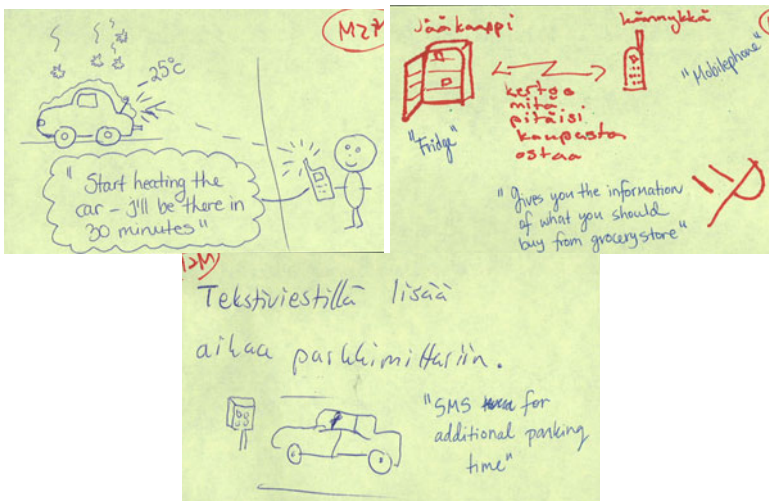 M2M
-25°C
"Start heating the
car – I'll be there in
30 minutes"
Jääkaappi
kännykkä
"Fridge"
"Mobilephone"
kertoo
mitä
pitäisi
kaupasta
ostaa
"Gives you the information
of what you should
buy from grocery store"
Tekstiviestillä lisää
aikaa parkkimittariin.
"SMS for
additional parking
time"